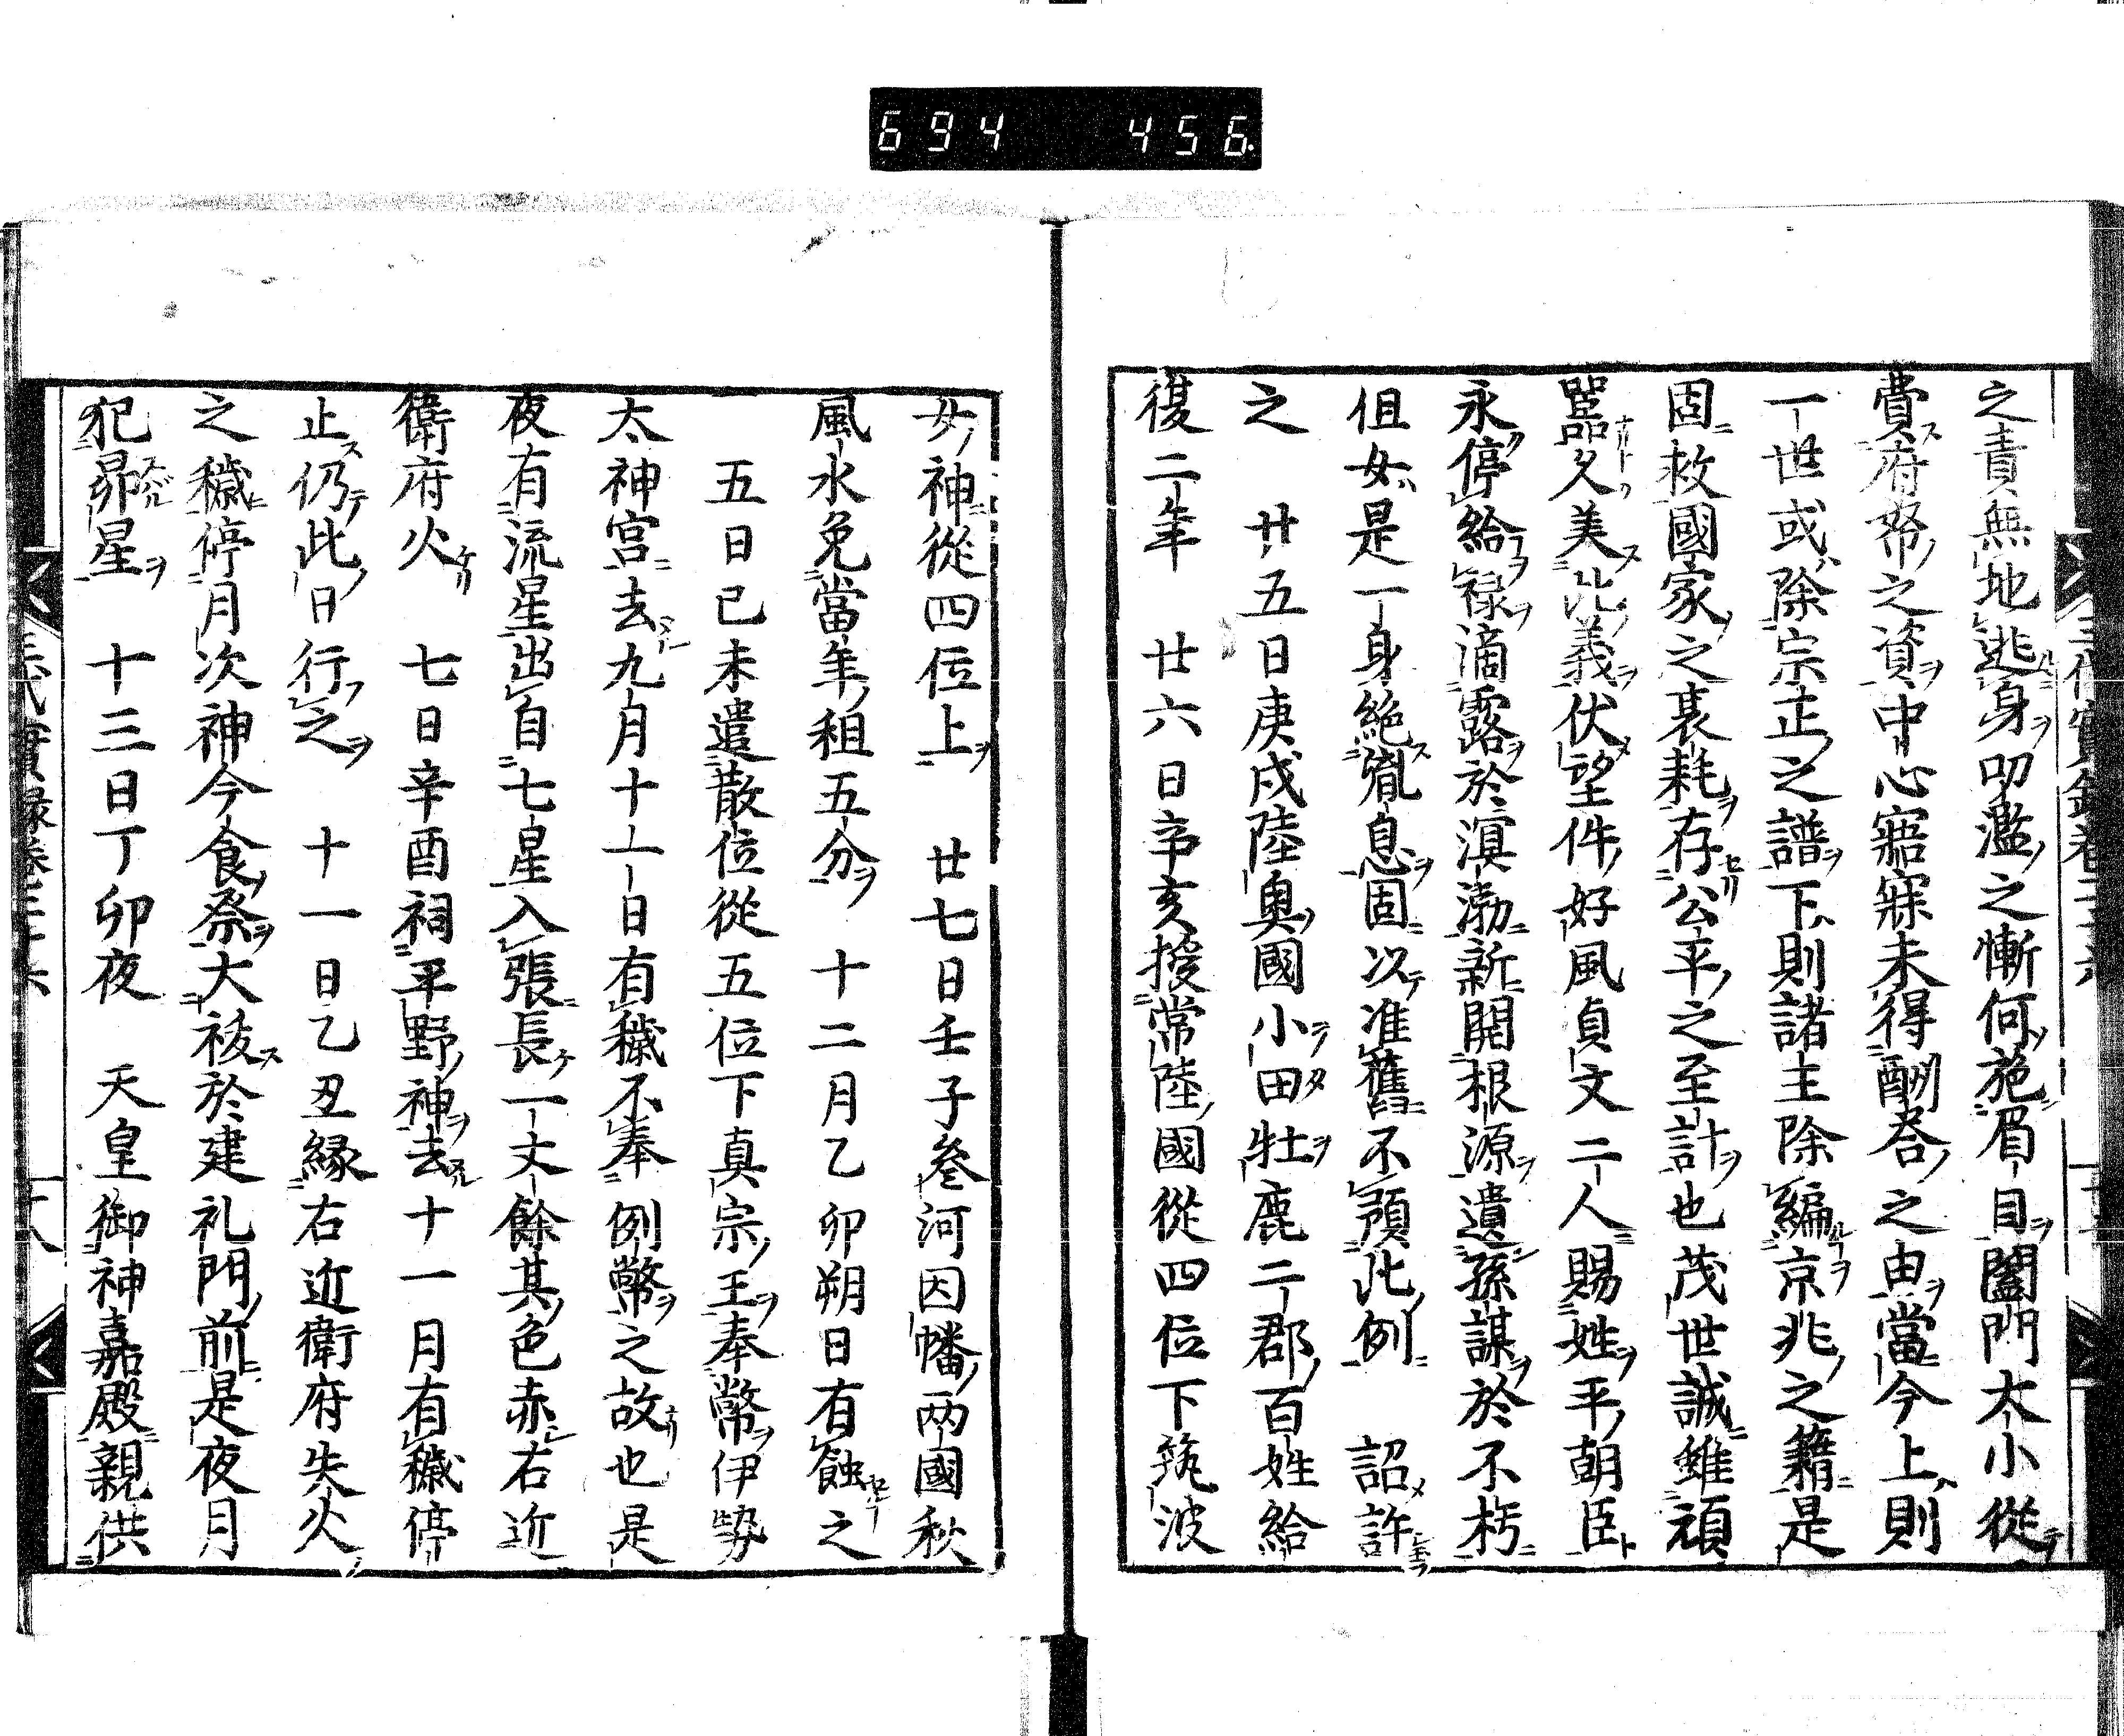 694 456
之責無地逃身叨濫之慚何施眉目闔門大小從
費府帑之資中心寤寐未得酬荅之由當今上則
一世或除宗正之譜下則諸主除編京兆之籍是
固救國家之裒耗存公平之至計也茂世誠雖頑
嚚久美此義伏望件好風貞文二人賜姓平朝臣
永停給禄滴露於溟渤新開根源遺孫謀於不朽
但女是一身絶胤息固以准舊不預此例 詔許
之 廿五日庚戌陸奥國小田牡鹿二郡百姓給
復二年 廿六日辛亥授常陸國從四位下筑波
女神從四位上 廿七日壬子叄河因幡两國秋
風水免當年租五分 十二月乙卯朔日有蝕之
五日已未遣散位從五位下真宗王奉幣伊勢
太神宮去九月十一日有穢不奉例幣之故也是
夜有流星出自七星入張長一丈餘其色赤右近
衛府火 七日辛酉祠平野神去十一月有穢停
止仍此日行之 十一日乙丑縁右近衛府失火
之穢停月次神今食祭大祓於建礼門前是夜月
犯昴星 十三日丁卯夜 天皇御神嘉殿親供